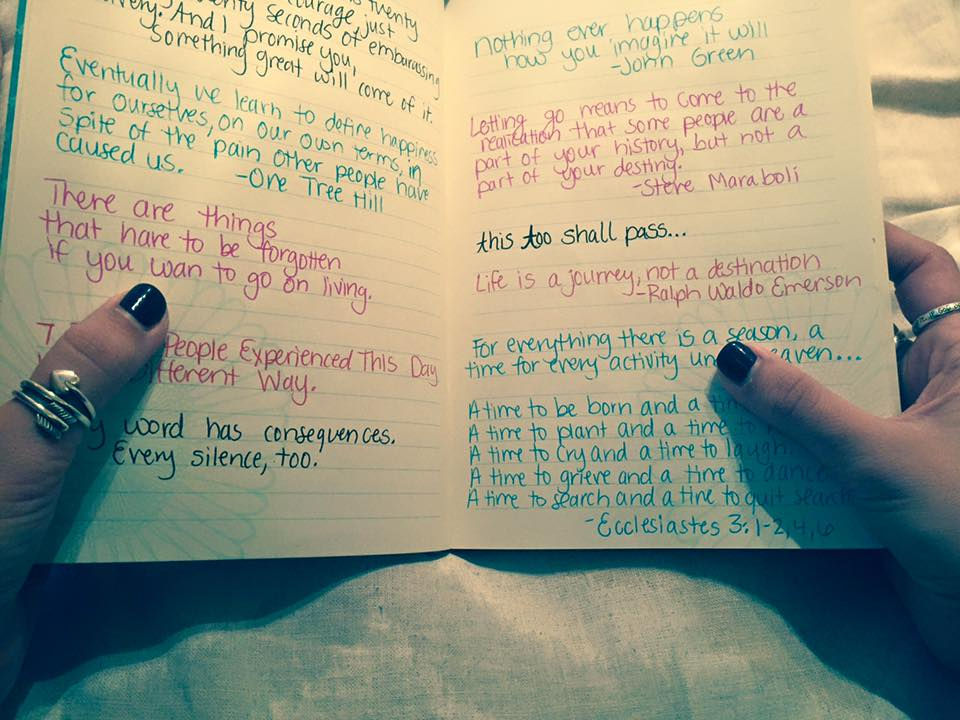 courage, just
twenty
twenty seconds of embarassing
And I promise you,
something great will come of it.
Eventually we learn to define happiness
for ourselves, on our own terms, in
spite of the pain other people have
caused us. -One Tree Hill
There are things
that have to be forgotten
if you wan to go on living.
People Experienced This Day
Different Way.
word has consequences.
Every silence, too.
nothing ever happens
how you imagine it will
-John Green
Letting go means to come to the
realization that some people are a
part of your history, but not a
part of your destiny.
-Steve Maraboli
this too shall pass...
Life is a journey, not a destination
-Ralph Waldo Emerson
For everything there is a season, a
time for every activity
A time to be born and a
A time to plant and a time to
A time to cry and a time to laugh
A time to grieve and a time to dance
A time to search and a tine to quit search
-Ecclesiastes 3:1-2,4,6